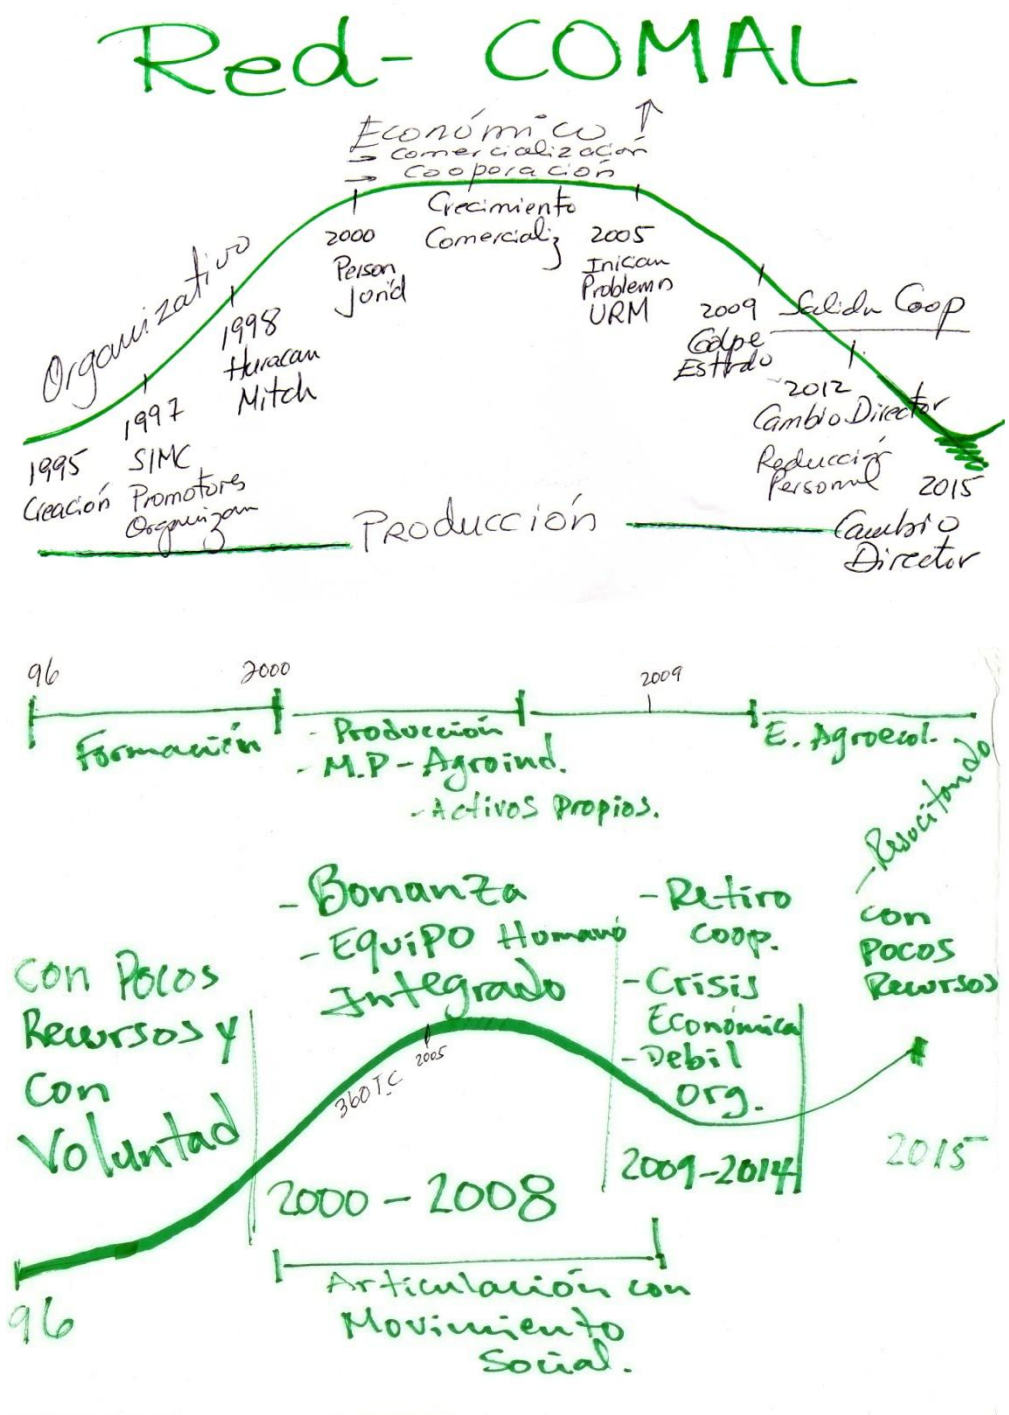 Red- COMAL
Económico ↑
→ comercialización
→ Cooporación
Crecimiento
Comercializ
Organizativo
1995
Creación
1997
SIMC
Promotores
Organizan
1998
Huracan
Mitch
2000
Person
Jurid
2005
Inician
Problemas
URM
2009
Golpe
Estado
Salida Coop
2012
Cambio Director
Reducción
Personal
2015
Cambio
Director
PRoducción
96
2000
2009
Formación
- Producción
- M.P - Agroind.
- Activos Propios.
E. Agroecol.
- Resucitando
con
Pocos
Recursos
Con Pocos
Recursos y
Con
Voluntad
- Bonanza
- Equipo Humano
Integrado
- Retiro
Coop.
- Crisis
Económica
- Debil
org.
2005
360 T.C
96
2000 - 2008
2009-2014
2015
Articulación con
Movimiento
Social.